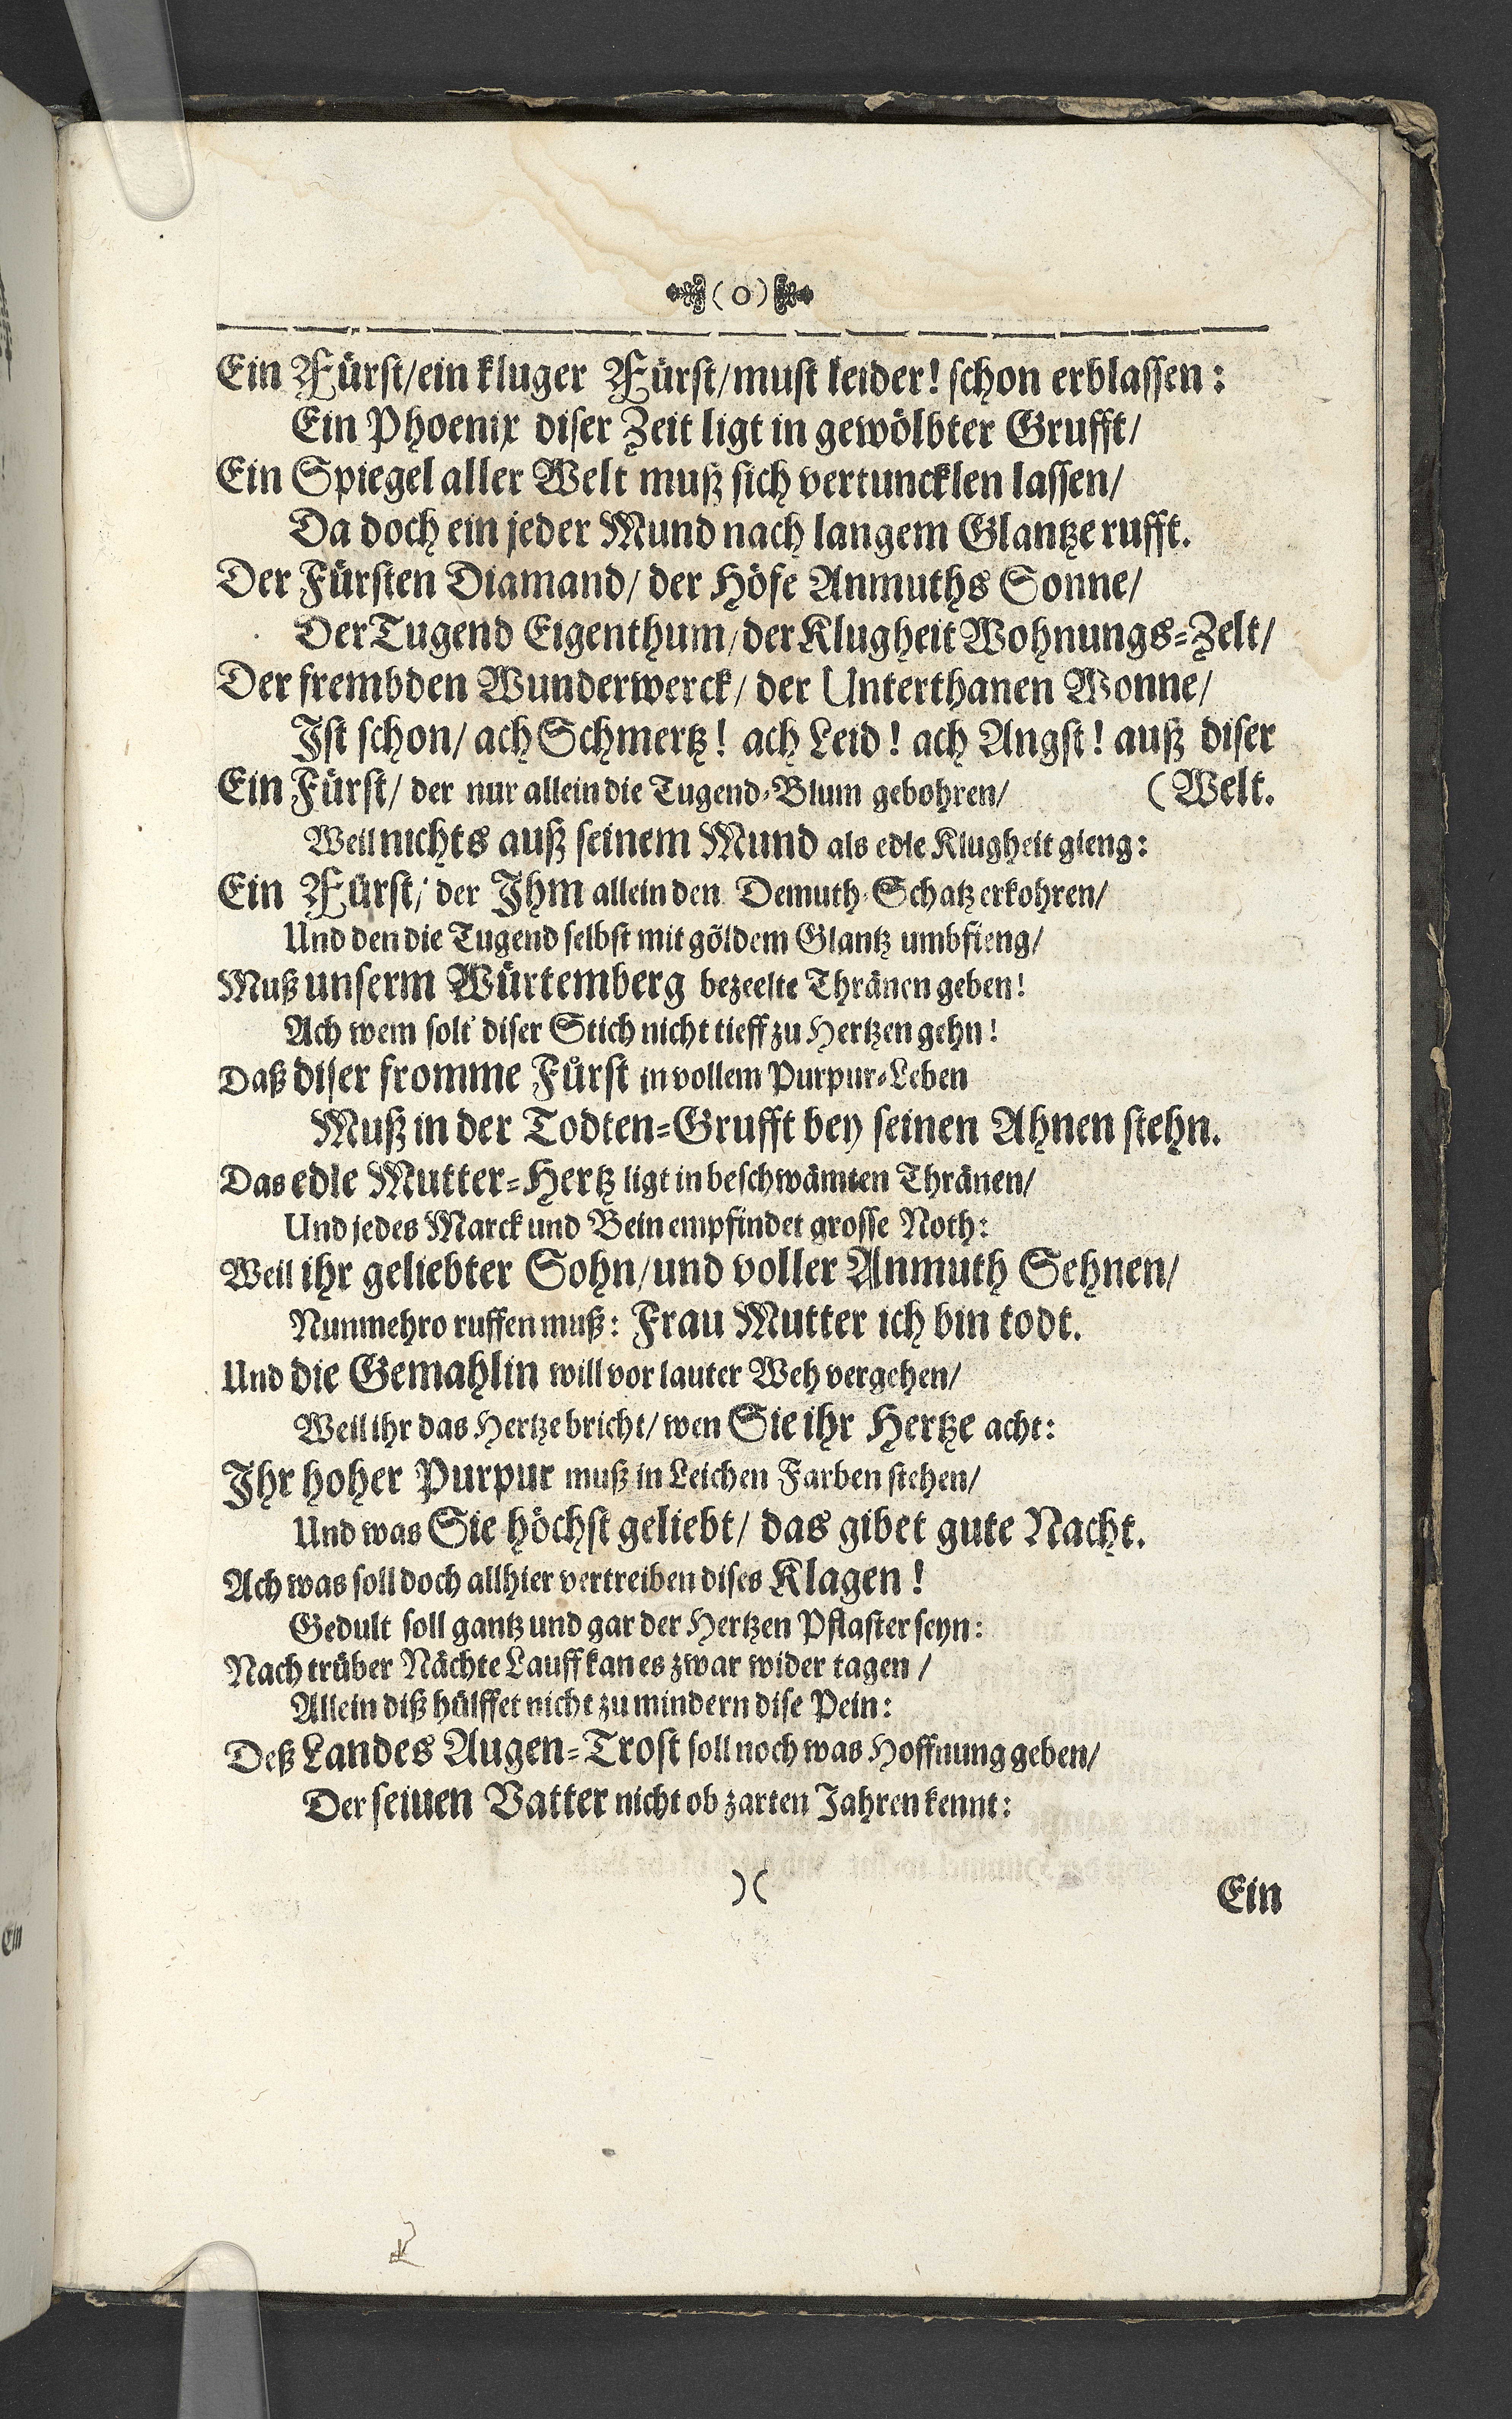 (0)
Ein Fürst/ein kluger Fürst/must leider! schon erblassen:
Ein Phoenix diser Zeit ligt in gewölbter Grufft/
Ein Spiegel aller Welt muß sich vertuncklen lassen/
Da doch ein jeder Mund nach langem Glantze rufft.
Der Fürsten Diamand/ der Höfe Anmuths Sonne/
Der Tugend Eigenthum/der Klugheit Wohnungs-Zelt/
Der frembden Wunderwerck/ der Unterthanen Wonne/
Ist schon/ ach Schmertz! ach Leid! ach Angst! auß diser
Ein Fürst/ der nur allein die Tugend-Blum gebohren/ (Welt.
Weil nichts auß seinem Mund als edle Klugheit gieng:
Ein Fürst/ der Ihm allein den Demuth-Schatz erkohren/
Und den die Tugend selbst mit göldem Glantz umbfieng/
Muß unserm Würtemberg bezeelte Thränen geben!
Ach wem solt' diser Stich nicht tieff zu Hertzen gehn!
Daß diser fromme Fürst in vollem Purpur-Leben
Muß in der Todten-Grufft bey seinen Ahnen stehn.
Das edle Mutter-Hertz ligt in beschwämten Thränen/
Und jedes Marck und Bein empfindet grosse Noth:
Weil ihr geliebter Sohn/und voller Anmuth Sehnen/
Nunmehro ruffen muß: Frau Mutter ich bin todt.
Und die Gemahlin will vor lauter Weh vergehen/
Weil ihr das Hertze bricht/ wen Sie ihr Hertze acht:
Ihr hoher Purpur muß in Leichen Farben stehen/
Und was Sie höchst geliebt/ das gibet gute Nacht.
Ach was soll doch allhier vertreiben dises Klagen!
Gedult soll gantz und gar der Hertzen Pflaster seyn:
Nach trüber Nächte Lauff kan es zwar wider tagen/
Allein diß hülffet nicht zu mindern dise Pein:
Deß Landes Augen-Trost soll noch was Hoffnung geben/
Der seiuen Vatter nicht ob zarten Jahren kennt:
)(
Ein